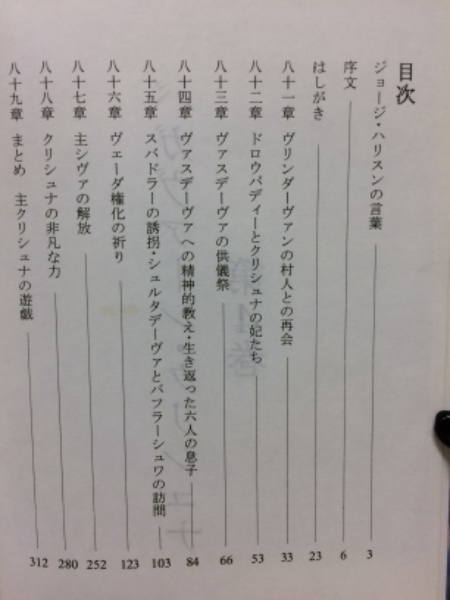 目次
ジョージ・ハリスンの言葉 3
序文 6
はしがき 23
八十一章 ヴリンダーヴァンの村人との再会 33
八十二章 ドロウパディーとクリシュナの妃たち 53
八十三章 ヴァスデーヴァの供儀祭 66
八十四章 ヴァスデーヴァへの精神的教え・生き返った六人の息子 84
八十五章 スバドラーの誘拐・シュルタデーヴァとバフラーシュワの訪問 103
八十六章 ヴェーダ権化の祈り 123
八十七章 主シヴァの解放 252
八十八章 クリシュナの非凡な力 280
八十九章 まとめ 主クリシュナの遊戯 312